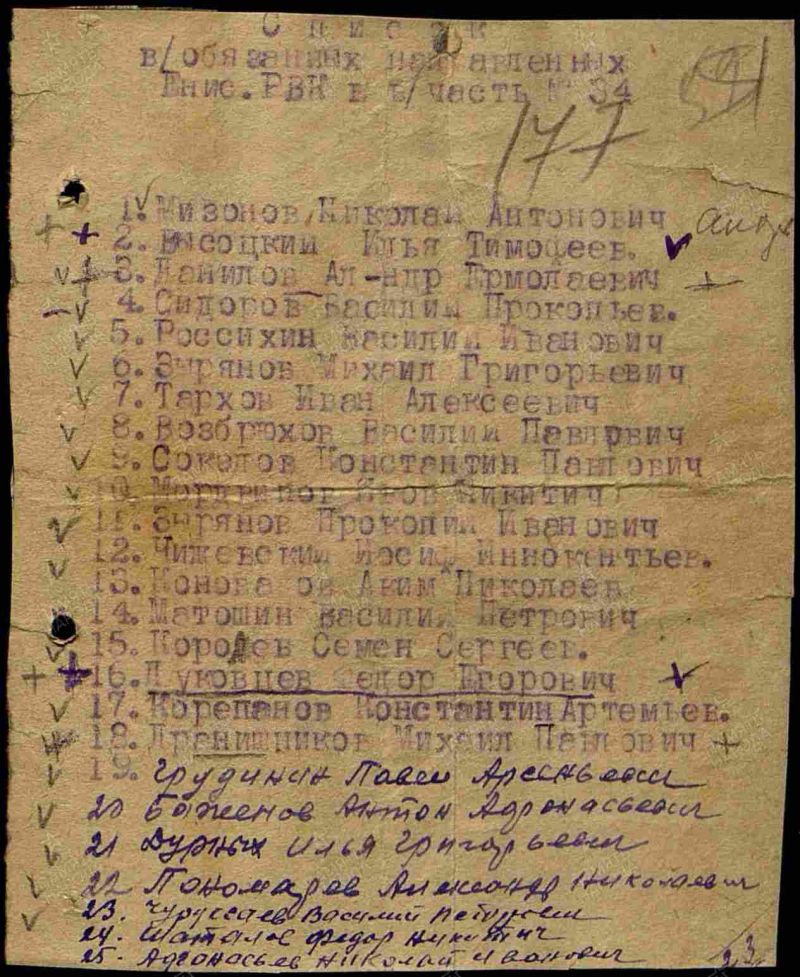 Список
в/обязанных направленных
Енис. РВК в в/часть № 34
177
1. Мизонов Николай Антонович
2. Высоцкий Илья Тимофеев.
3. Данилов Ал-ндр Ермолаевич
4. Сидоров Василий Прокопьев.
5. Россихин Василий Иванович
6. Зырянов Михаил Григорьевич
7. Тархов Иван Алексеевич
8. Возбрюхов Василий Павлович
9. Соколов Константин Павлович
10. Никитич
11. Зырянов Прокопий Иванович
12. Чижевский Иосиф Иннокентьев.
13. Коновалов Аким Николаев
14. Матошин Василий Петрович
15. Королев Семен Сергеев.
16. Луковцев Федор Егорович
17. Корепанов Константин Артемьев.
18. Дранишников Михаил Павлович
19. Грудинин Павел Арсеньевич
20 Баженов Антон Афонасьевич
21 Дурных Илья Григорьевич
22 Пономарев Александр Николаевич
23. Василий Петрович
24. Шаталов Федор Никитич
25. Афонасьев Николай Иванович
23